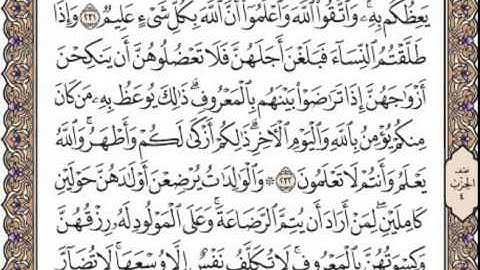 يَعِظُكُم بِهِۦۚ وَٱتَّقُوا۟ ٱللَّهَ وَٱعْلَمُوٓا۟ أَنَّ ٱللَّهَ بِكُلِّ شَىْءٍ عَلِيمٌ ٢٣١ وَإِذَا
طَلَّقْتُمُ ٱلنِّسَآءَ فَبَلَغْنَ أَجَلَهُنَّ فَلَا تَعْضُلُوهُنَّ أَن يَنكِحْنَ
أَزْوَٰجَهُنَّ إِذَا تَرَٰضَوْا۟ بَيْنَهُم بِٱلْمَعْرُوفِۗ ذَٰلِكَ يُوعَظُ بِهِۦ مَن كَانَ
مِنكُمْ يُؤْمِنُ بِٱللَّهِ وَٱلْيَوْمِ ٱلْءَاخِرِۗ ذَٰلِكُمْ أَزْكَىٰ لَكُمْ وَأَطْهَرُۚ وَٱللَّهُ
يَعْلَمُ وَأَنتُمْ لَا تَعْلَمُونَ ٢٣٢ ۞ وَٱلْوَٰلِدَٰتُ يُرْضِعْنَ أَوْلَٰدَهُنَّ حَوْلَيْنِ
كَامِلَيْنِۖ لِمَنْ أَرَادَ أَن يُتِمَّ ٱلرَّضَاعَةَۚ وَعَلَى ٱلْمَوْلُودِ لَهُۥ رِزْقُهُنَّ
وَكِسْوَتُهُنَّ بِٱلْمَعْرُوفِۚ لَا تُكَلَّفُ نَفْسٌ إِلَّا وُسْعَهَاۚ لَا تُضَآرَّ
نصف
الحزب
٤